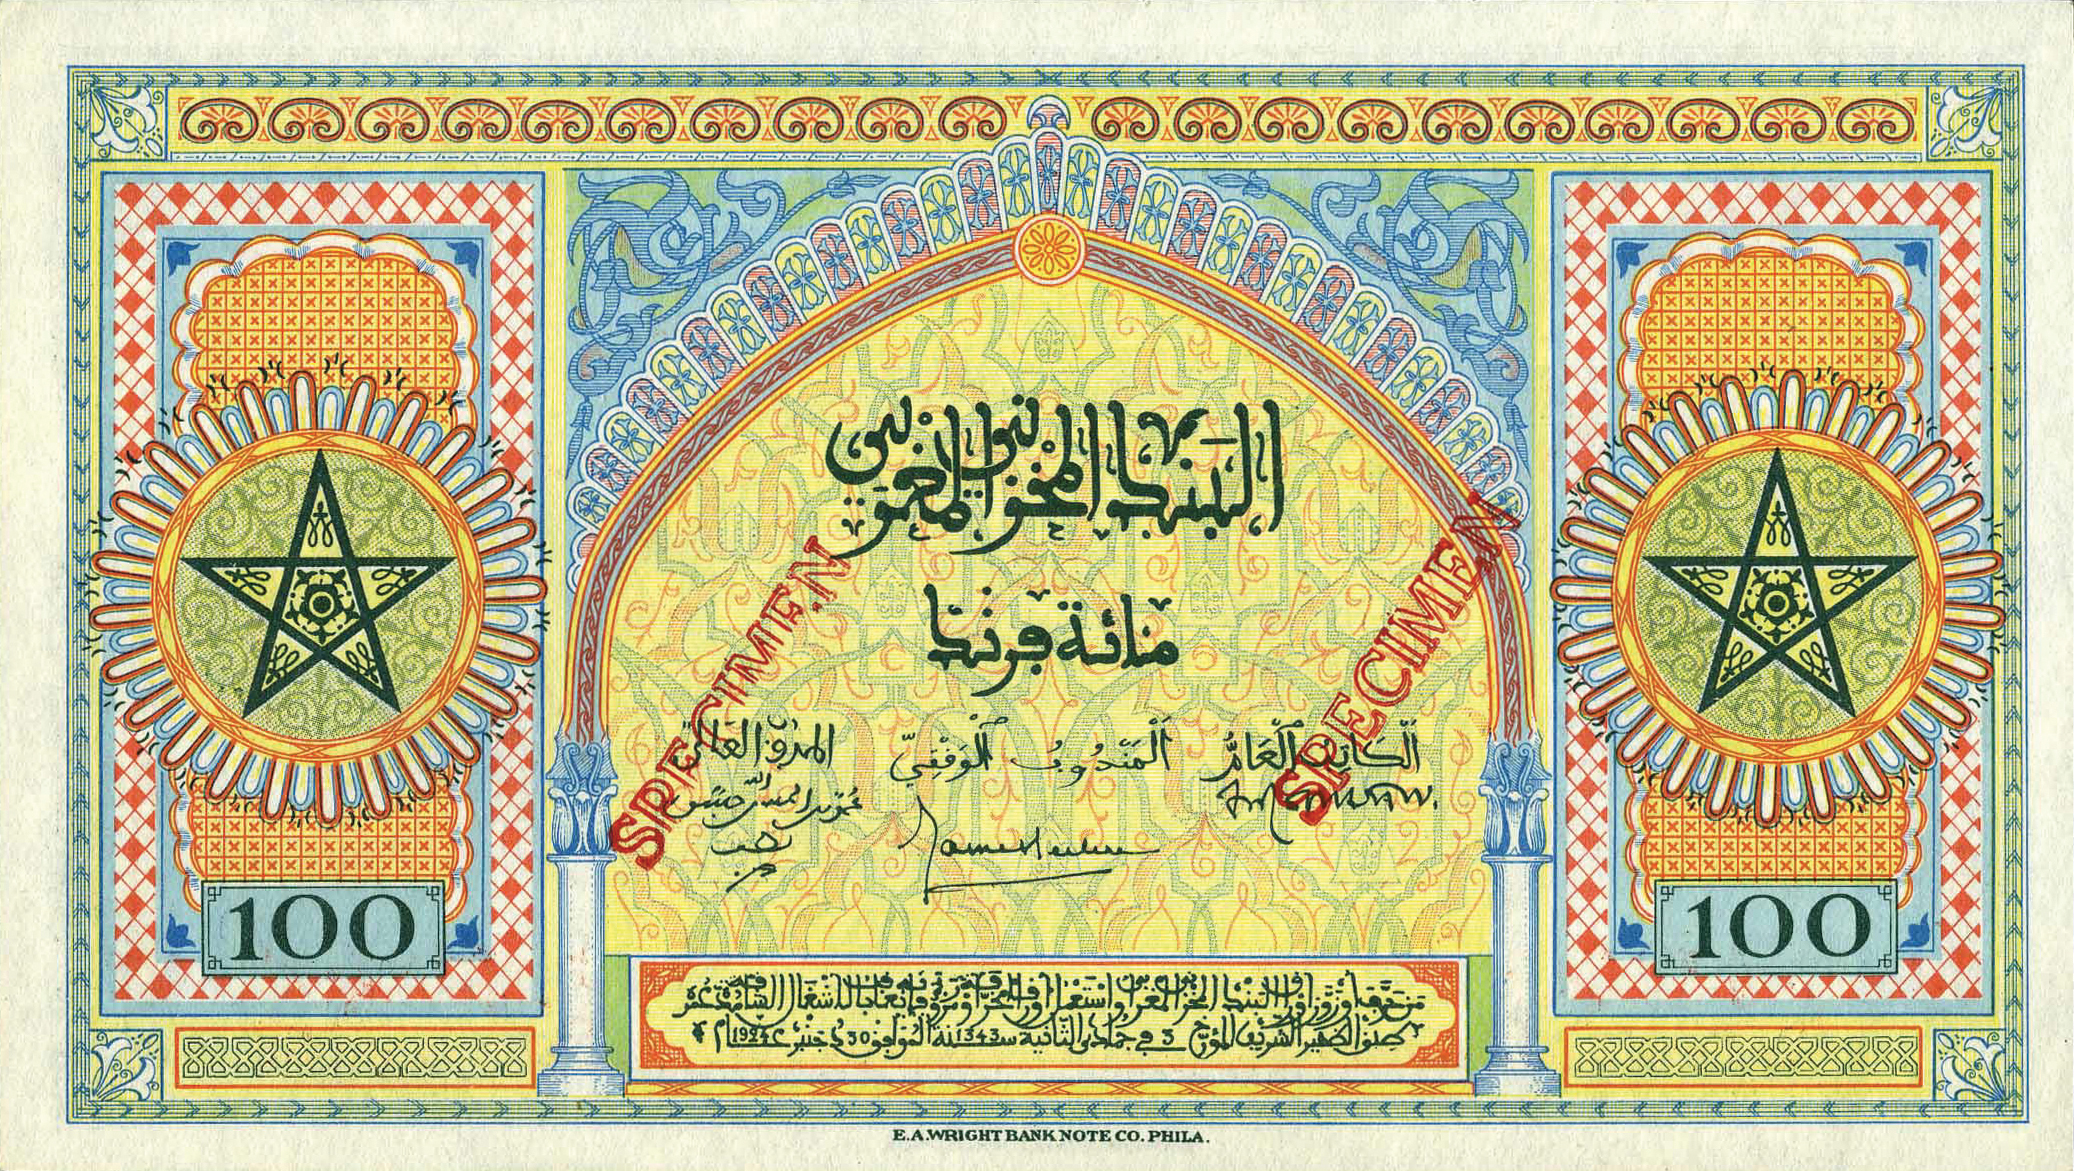 البنك المخزني المغربي
مائة فرنك
الكاتب العام
المندوب الوفقي
المراقب العالي
SPECIMEN
SPECIMEN
100
100
من حرف أو زور أوراق البنك المخزني المغربي واستعمل أوراقا محرفة أو مزورة فإنه يعاقب بالأشغال الشاقة عمره
طبق الظهير الشريف المؤرخ 3 في جمادى الثانية سنة 1343 الموافق 30 دجنبر 1924م
E.A.WRIGHT BANK NOTE CO. PHILA.